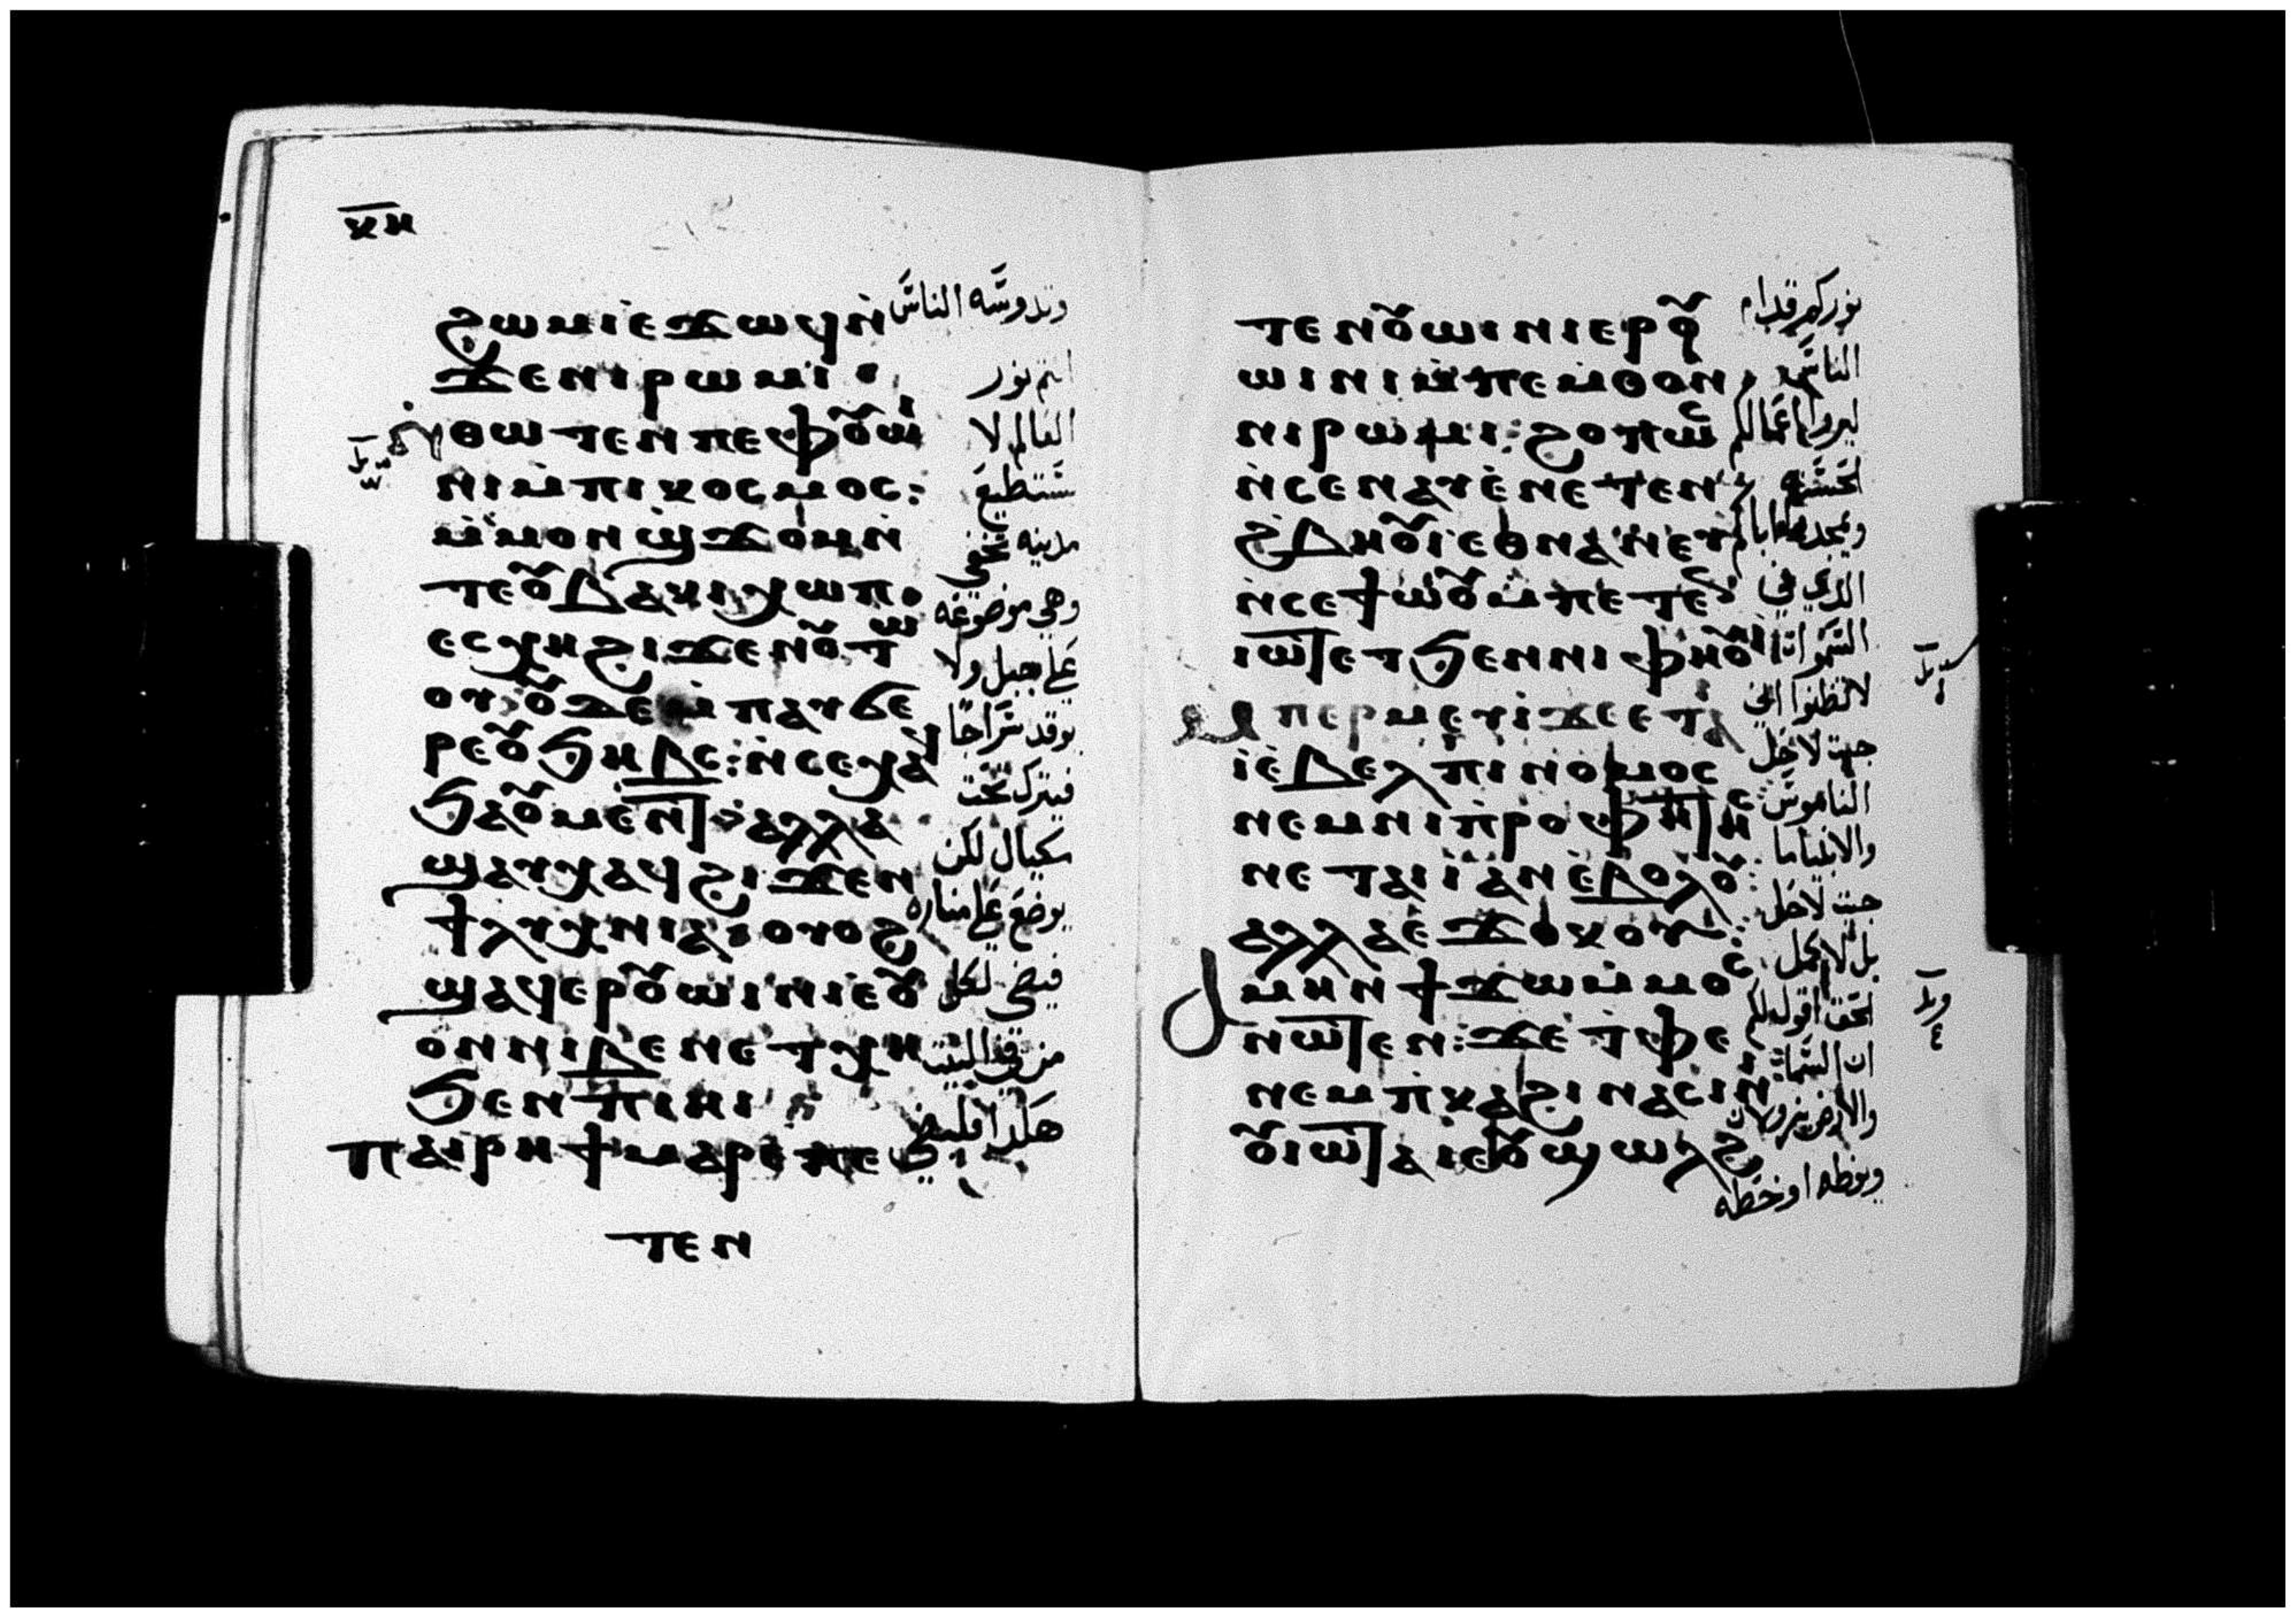 ⲕⲏ
ϩⲱⲙⲓⲉϫⲱϥⲛ̀
ϫⲉⲛⲓⲣⲱⲙⲓ
ⲛ̀ⲑⲱⲧⲉⲛⲡⲉⲫⲟⲩⲱⲓ
ⲛⲓⲙ̀ⲡⲓⲕⲟⲥⲙⲟⲥ:
ⲙ̀ⲙⲟⲛϣ̀ϫⲟⲙⲛ̀
ⲧⲉⲟⲩⲃⲁⲕⲓⲭⲱⲡ
ⲉⲥⲭⲏϩⲓϫⲉⲛⲟⲩⲧⲱ
ⲟⲩⲇⲉⲙ̀ⲡⲁⲩϭⲉ
ⲣⲉⲟⲩϧⲏⲃⲥ:ⲛ̀ⲥⲉⲭⲁϥ
ϧⲁⲟⲩⲙⲉⲛⲧ:ⲁⲗⲗⲁ
ϣⲁⲩⲭⲁϥϩⲓϫⲉⲛ
ϯⲗⲩⲭⲛⲓⲁ:ⲟⲩⲟϩ
ϣⲁϥⲉⲣⲟⲩⲱⲓⲛⲓⲉⲟⲩ
ⲟⲛⲛⲓⲃⲉⲛⲉⲧⲭⲏ
ϧⲉⲛⲡⲓⲏⲓ
ⲡⲁⲓⲣⲏϯⲙⲁⲣⲉⲡⲉ
ⲧⲉⲛ
وتدوسه الناس
انتم نور
العالم لا
تستطيع
مدينه تخفى
وهي موضوعه
على جبل ولا
يوقد سراجا
فيترك تحت
مكيال لكن
يوضع على مناره
فيضى لكل
من في البيت
هكذا فليضي
ⲧⲉⲛⲟⲩⲱⲓⲛⲓⲉⲣⲟⲩ
ⲱⲓⲛⲓⲙ̀ⲡⲉⲙⲑⲟⲛ
ⲛⲓⲣⲱⲙⲓ:ϩⲟⲡⲱⲥ
ⲛ̀ⲥⲉⲛⲁⲩⲉ̀ⲛⲉⲧⲉⲛ
ϩ̀ⲃⲏⲟⲩⲓⲉⲑⲛⲁⲛⲉⲩ
ⲛ̀ⲥⲉϯⲱ̀ⲟⲩⲙ̀ⲡⲉⲧⲉ
ⲓⲱⲧⲉⲧϧⲉⲛⲛⲓⲫⲏⲟⲩⲓ
ⲙⲡⲉⲣⲙⲉⲩⲓ̀ϫⲉⲉⲧⲁ
ⲓ̀ⲉ̀ⲃⲉⲗⲡⲓⲛⲟⲙⲟⲥ
ⲛⲉⲙⲛⲓⲡ̀ⲣⲟⲫⲏⲧⲏⲥ
ⲛⲉⲧⲁⲓⲓ̀ⲁⲛⲉ̀ⲃⲟⲗⲟⲩ:
ⲁⲗⲗⲁⲉϫⲟⲕⲟⲩ:
ⲁⲙⲏⲛϯϫⲱⲙ̀ⲙⲟⲥ
ⲛⲱⲧⲉⲛ:ϫⲉⲧⲫⲉ
ⲛⲉⲙⲡ̀ⲕⲁϩⲓⲛⲁⲥⲓⲛ
ⲟⲩⲓⲱⲧⲁⲓⲉⲟⲩϣⲱⲗϩ
نوركم قدام
الناس
ليروا اعمالكم
الحسنه
ويمجدوا اباكم
الذي في
السموات
لا تظنوا اني
جيت لاحل
الناموس
والانبيا ما
جيت لاحل
بل لاكمل
الحق اقول لكم
ان السما
والارض يزولان
ونقطه او خطه